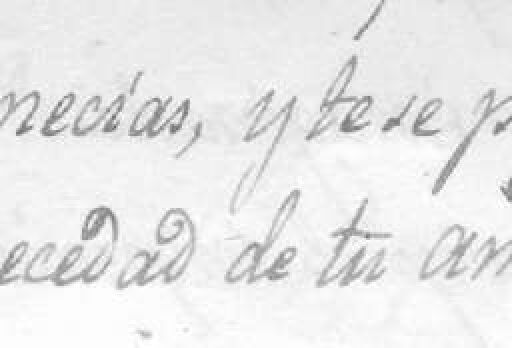 necias, y te se p
ecedad de tu am